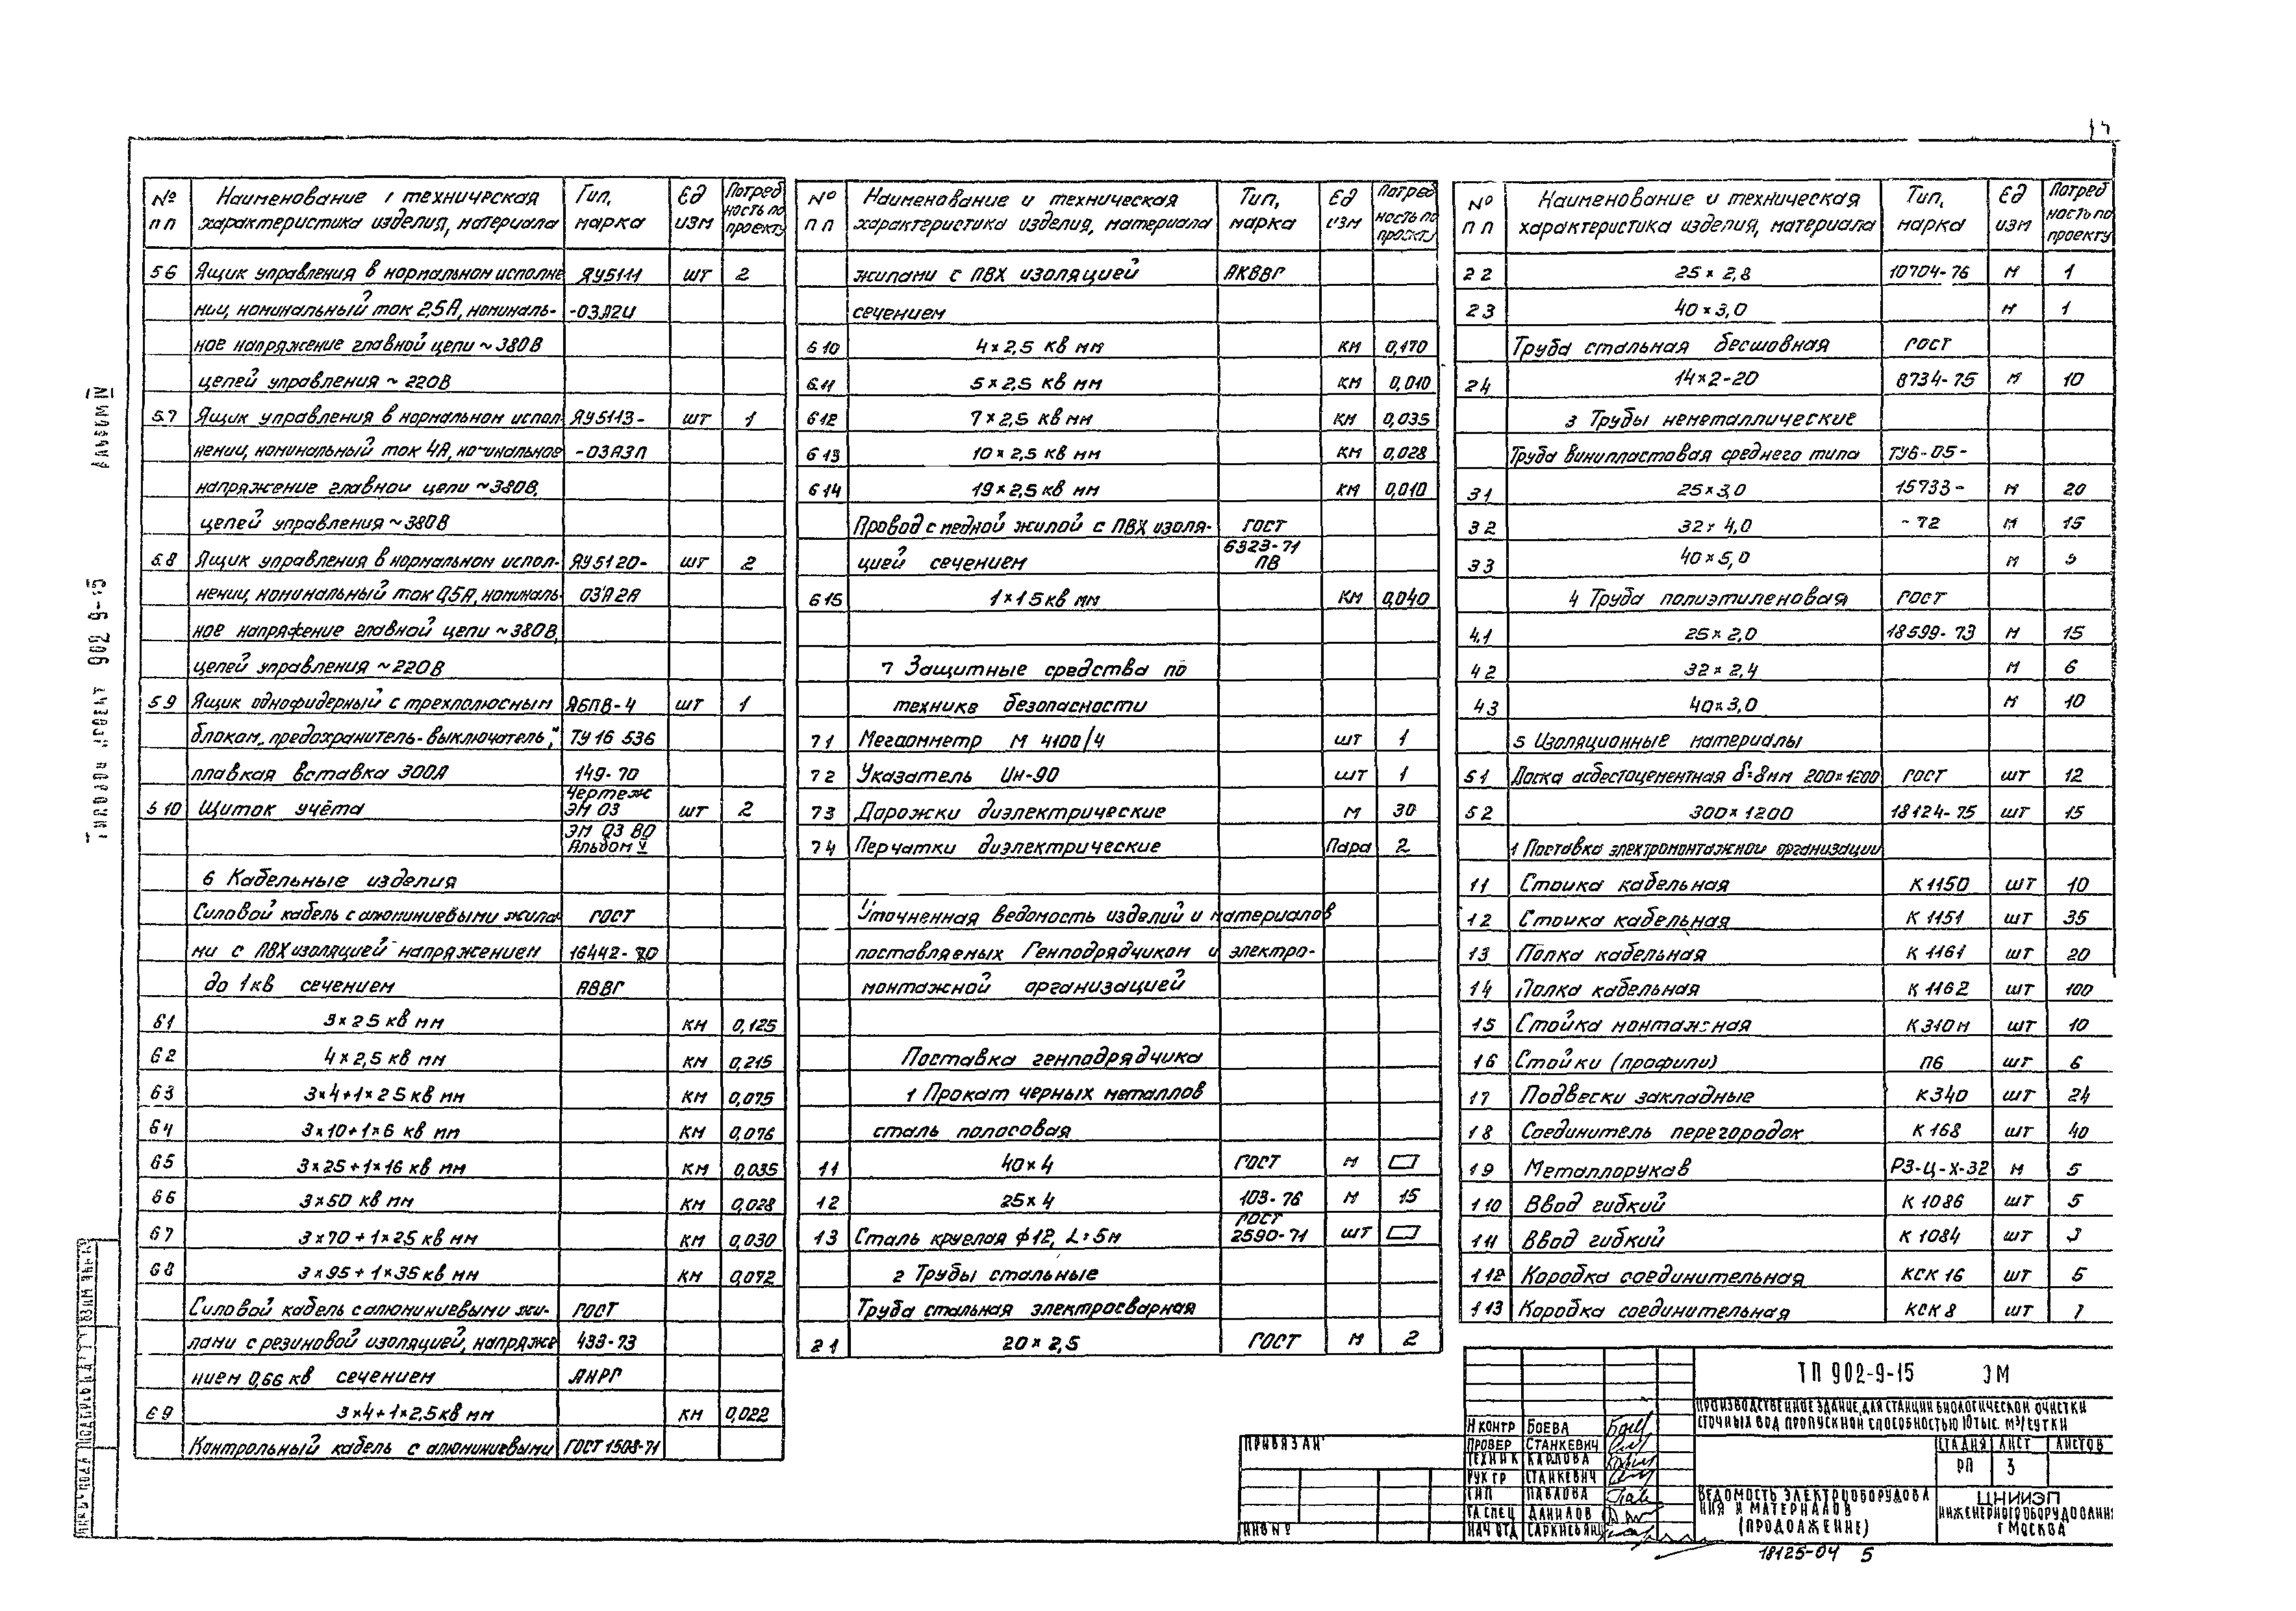 № пп | Наименование и техническая характеристика изделия, материала | Тип, марка | Ед изм | Потребность по проекту
5 6 | Ящик управления в нормальном исполне | ЯУ5111 | шт | 2
нии, номинальный ток 2,5А, номиналь- | -03А2И
ное напряжение главной цепи ~ 380В
цепей управления ~ 220В
5.7 | Ящик управления в нормальном испол | ЯУ5113- | шт | 1
нении, номинальный ток 4А, номинальное | -03А3Л
напряжение главной цепи ~380В,
цепей управления ~ 380В
5.8 | Ящик управления в нормальном испол- | ЯУ5120- | шт | 2
нении, номинальный ток 0,5А, номиналь- | 03А2А
ное напряжение главной цепи ~ 380В,
цепей управления ~ 220В
5 9 | Ящик однофидерный с трехполюсным | ЯБПВ-4 | шт | 1
блоком „предохранитель-выключатель", | ТУ 16 536
плавкая вставка 300А | 149-70
5 10 | Щиток учёта | Чертеж ЭМ 03 | шт | 2
ЭМ 03 ВО Альбом V
6 Кабельные изделия
Силовой кабель с алюминиевыми жила- | ГОСТ
ми с ПВХ изоляцией напряжением | 16442-80
до 1кв сечением | АВВГ
6 1 | 3×2 5 кв мм | км | 0,125
6 2 | 4×2,5 кв мм | км | 0,215
6 3 | 3×4+1×2 5 кв мм | км | 0,075
6 4 | 3×10+1×6 кв мм | км | 0,076
6 5 | 3×25+1×16 кв мм | км | 0,035
6 6 | 3×50 кв мм | км | 0,028
6 7 | 3×70+1×25 кв мм | км | 0,030
6 8 | 3×95+1×35 кв мм | км | 0,072
Силовой кабель с алюминиевыми жи- | ГОСТ
лами с резиновой изоляцией, напряже | 433-73
нием 0,66 кв сечением | АНРГ
6 9 | 3×4+1×2,5 кв мм | км | 0,022
Контрольный кабель с алюминиевыми | ГОСТ 1508-71
№ пп | Наименование и техническая характеристика изделия, материала | Тип, марка | Ед изм | Потребность по проекту
жилами с ПВХ изоляцией | АКВВГ
сечением
6 10 | 4×2,5 кв мм | км | 0,170
6.11 | 5×2,5 кв мм | км | 0,010
6 12 | 7×2,5 кв мм | км | 0,035
6 13 | 10×2,5 кв мм | км | 0,028
6 14 | 19×2,5 кв мм | км | 0,010
Провод с медной жилой с ПВХ изоля- | ГОСТ
цией сечением | 6323-71 ПВ
6 15 | 1×1 5 кв мм | км | 0,040
7 Защитные средства по
технике безопасности
7 1 | Мегаомметр М 4100/4 | шт | 1
7 2 | Указатель Ин-90 | шт | 1
7 3 | Дорожки диэлектрические | м | 30
7 4 | Перчатки диэлектрические | Пара | 2
Уточненная ведомость изделий и материалов
поставляемых Генподрядчиком и электро-
монтажной организацией
Поставка генподрядчика
1 Прокат черных металлов
сталь полосовая
1 1 | 40×4 | ГОСТ | м
1 2 | 25×4 | 103-76 | м | 15
1 3 | Сталь круглая ф12, L=5м | ГОСТ 2590-71 | шт
2 Трубы стальные
Труба стальная электросварная
2 1 | 20×2,5 | ГОСТ | м | 2
№ пп | Наименование и техническая характеристика изделия, материала | Тип, марка | Ед изм | Потребность по проекту
2 2 | 25×2,8 | 10704-76 | м | 1
2 3 | 40×3,0 | м | 1
Труба стальная бесшовная | ГОСТ
2 4 | 14×2-20 | 8734-75 | м | 10
3 Трубы неметаллические
Труба винипластовая среднего типа | ТУ6-05-
3 1 | 25×3,0 | 15733- | м | 20
3 2 | 32×4,0 | -72 | м | 15
3 3 | 40×5,0 | м | 5
4 Труба полиэтиленовая | ГОСТ
4.1 | 25×2,0 | 18599-73 | м | 15
4 2 | 32×2,4 | м | 6
4 3 | 40×3,0 | м | 10
5 Изоляционные материалы
5 1 | Доска асбестоцементная δ=8мм 200×1200 | ГОСТ | шт | 12
5 2 | 300×1200 | 18124-75 | шт | 15
1 Поставка электромонтажной организации
1 1 | Стойка кабельная | К 1150 | шт | 10
1 2 | Стойка кабельная | К 1151 | шт | 35
1 3 | Полка кабельная | К 1161 | шт | 20
1 4 | Полка кабельная | К 1162 | шт | 100
1 5 | Стойка монтажная | К 310 м | шт | 10
1 6 | Стойки (профили) | П6 | шт | 6
1 7 | Подвески закладные | К340 | шт | 24
1 8 | Соединитель перегородок | К 168 | шт | 40
1 9 | Металлорукав | РЗ-Ц-Х-32 | м | 5
1 10 | Ввод гибкий | К 1086 | шт | 5
1 11 | Ввод гибкий | К 1084 | шт | 3
1 12 | Коробка соединительная | КСК 16 | шт | 5
1 13 | Коробка соединительная | КСК 8 | шт | 1
Альбом IV
Типовой проект 902 9-15
ПРИВЯЗАН
ИНВ №
Н КОНТР БОЕВА
ПРОВЕР СТАНКЕВИЧ
ТЕХНИК КАРЛОВА
РУК ГР СТАНКЕВИЧ
ГИП ПАВЛОВА
ГЛ СПЕЦ ДАНИЛОВ
НАЧ ОТД САРКИСЬЯНЦ
ТП 902-9-15 ЭМ
ПРОИЗВОДСТВЕННОЕ ЗДАНИЕ ДЛЯ СТАНЦИИ БИОЛОГИЧЕСКОЙ ОЧИСТКИ
СТОЧНЫХ ВОД ПРОПУСКНОЙ СПОСОБНОСТЬЮ 10 ТЫС. М³/СУТКИ
СТАДИЯ ЛИСТ ЛИСТОВ
РП 3
ВЕДОМОСТЬ ЭЛЕКТРООБОРУДОВА
НИЯ И МАТЕРИАЛОВ
(ПРОДОЛЖЕНИЕ)
ЦНИИЭП
ИНЖЕНЕРНОГО ОБОРУДОВАНИЯ
г МОСКВА
18125-04 5